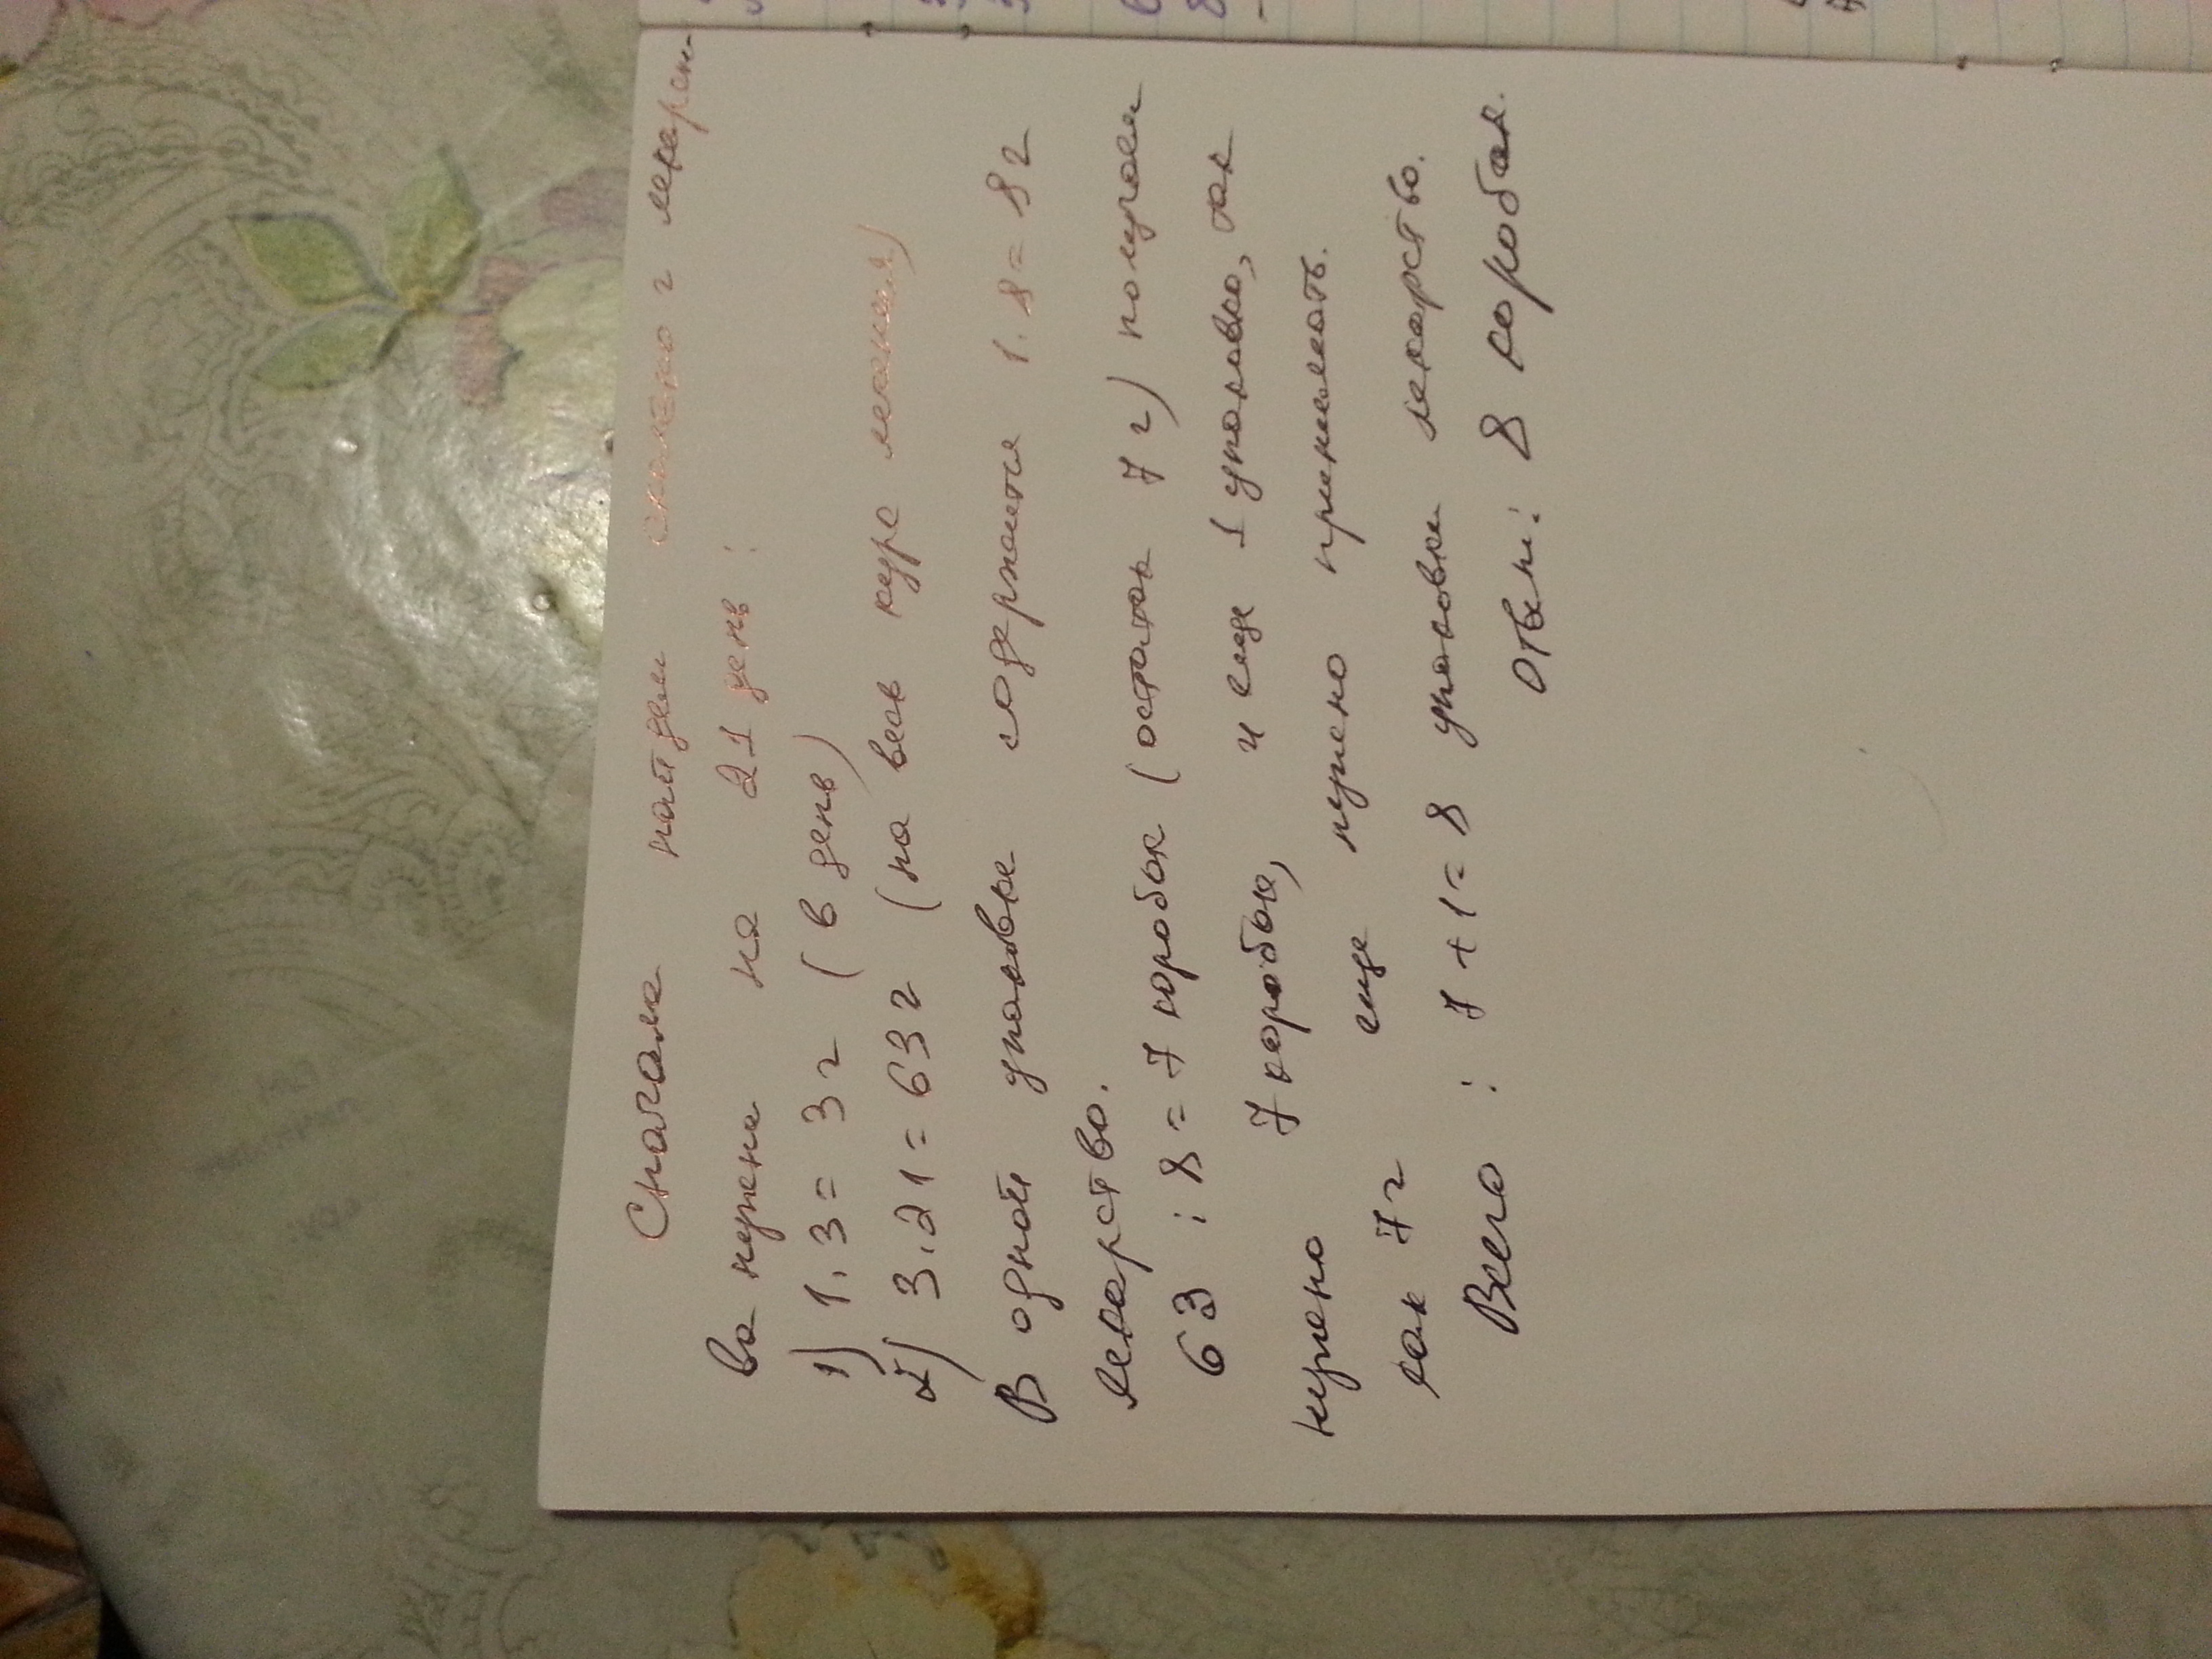 Сначала найдем сколько г лекарс-
ва нужно на 21 день:
1) 1.3 = 3 г (в день)
2) 3.21 = 63 г (на весь курс лечения)
В одной упаковке содержится 1.8 = 8 г
лекарство.
63 : 8 = 7 коробок (остаток 7 г) получаем
нужно 7 коробок, и еще 1 упаковка, так
как 7 г еще нужно принимать.
Всего : 7 + 1 = 8 упаковки лекарство.
Ответ: 8 коробок.